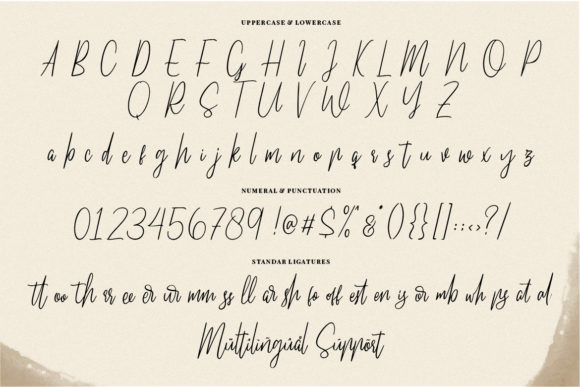 UPPERCASE & LOWERCASE
A B C D E F G H I J K L M N O P
Q R S T U V W X Y Z
a b c d e f g h i j k l m n o p q r s t u v w x y z
NUMERAL & PUNCTUATION
0123456789 !@#$%^&*(){}[]:;<>?/
STANDAR LIGATURES
tt oo th rr ee er ur mm ss ll ar sh fo off est en is or mb wh ps at al
Multilingual Support